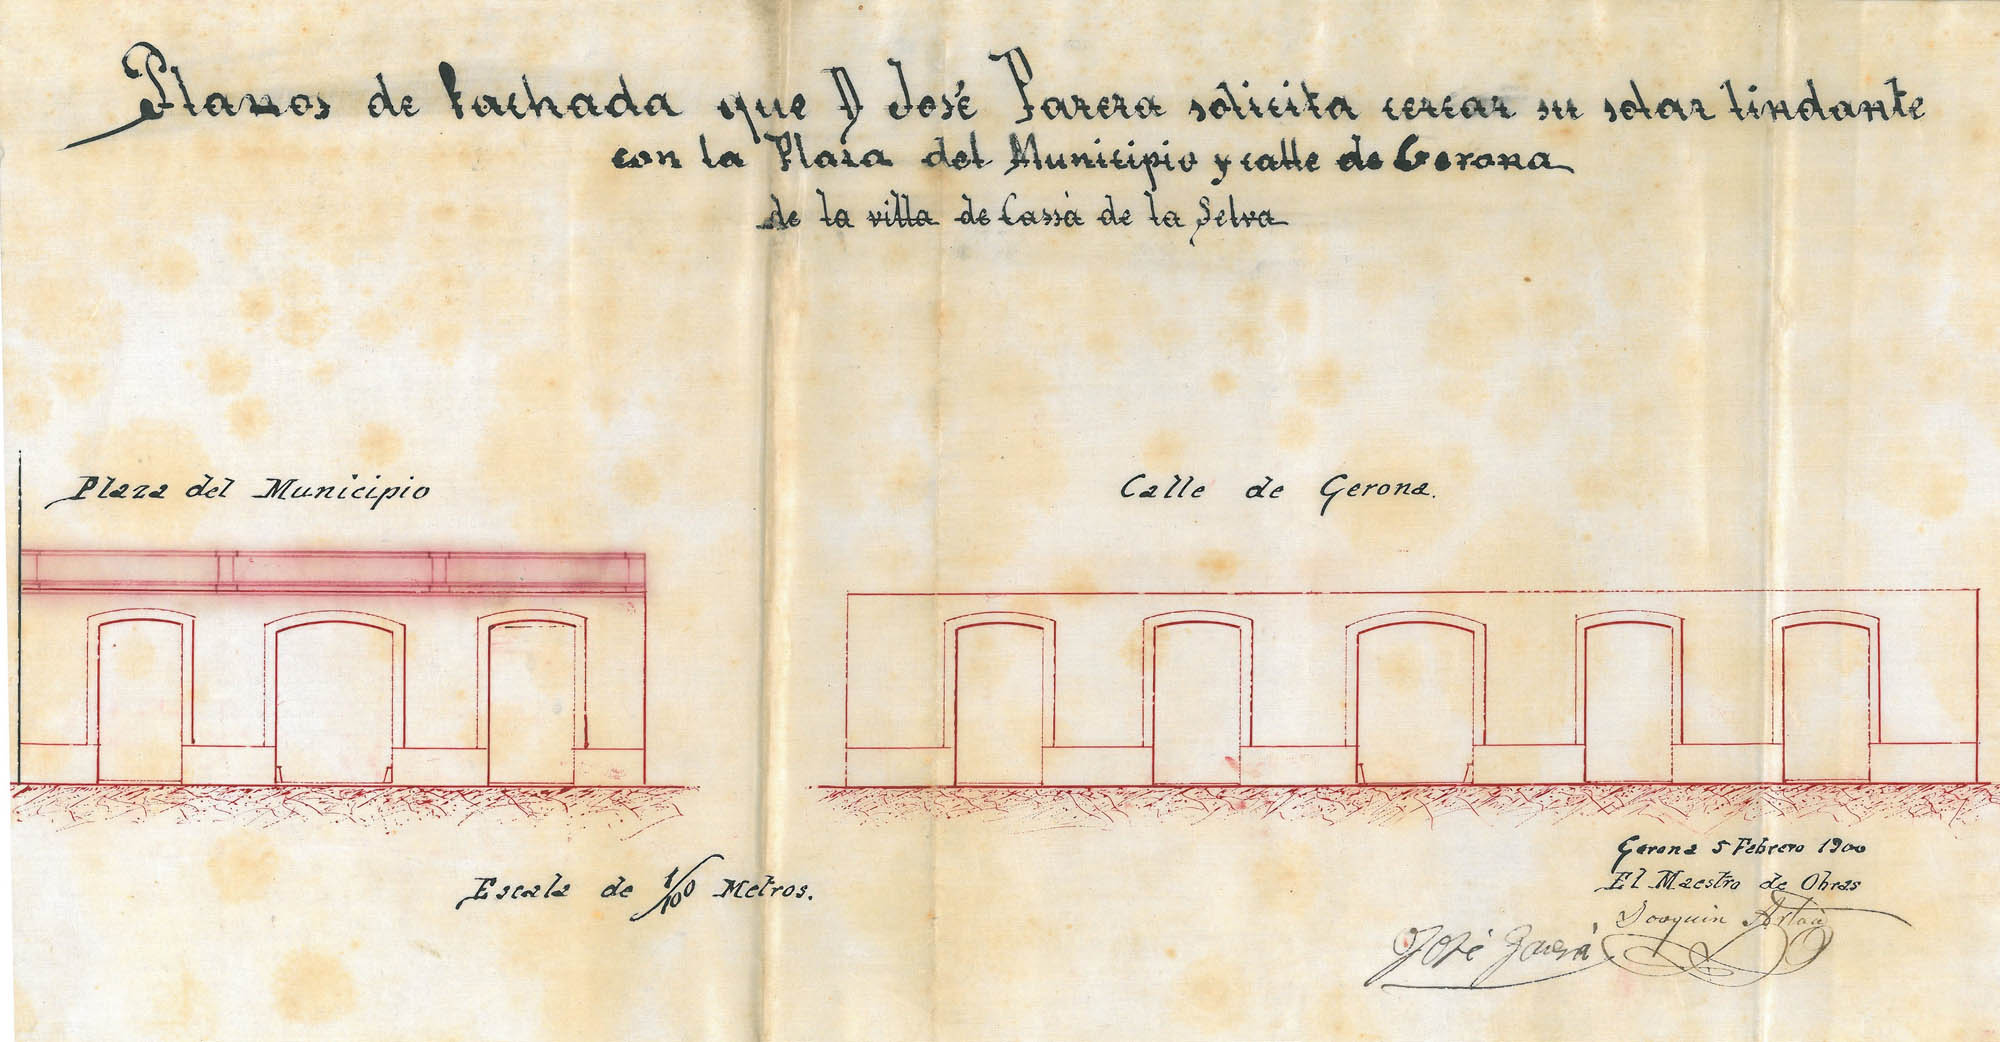 Planos de Fachada que D José Parera sólicita cercar su solar lindante
con la Plaza del Municipio y calle de Gerona
de la villa de Cassà de la Selva
Plaza del Municipio
Calle de Gerona.
Escala de 1/100 Metros.
Gerona 5 Febrero 1900
El Maestro de Obras
Joaquin Artau
José Parera